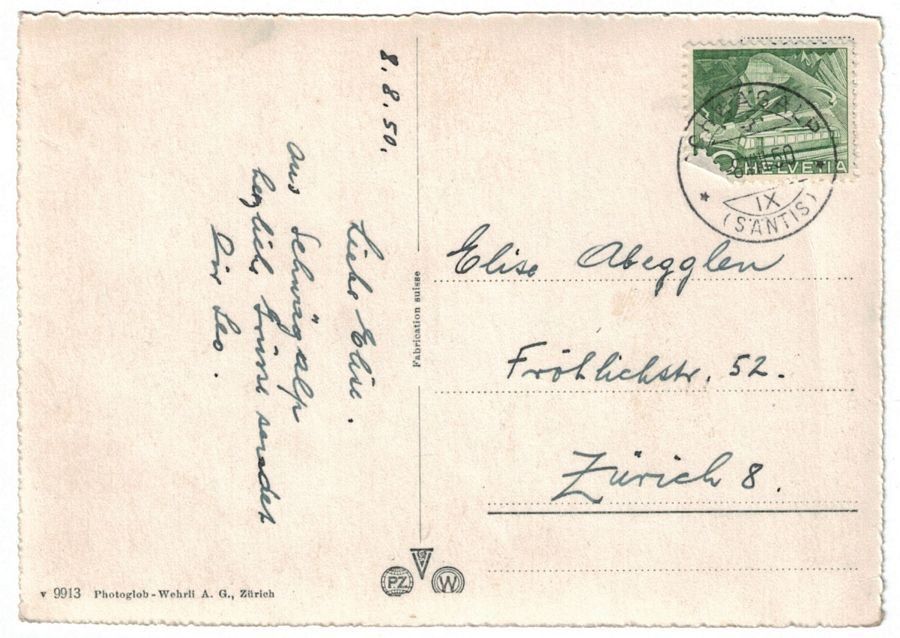 8. 8. 50.
Liebe Elise.
aus Schwägalp
herzlich Grüsse sendet
Dir Leo.
Fabrication suisse
SCHWÄGALP
8.VIII.50
IX
(SÄNTIS)
HELVETIA
Elise Abegglen
Fröhlichstr. 52.
Zürich 8.
PZ
W
v 9913 Photoglob-Wehrli A. G., Zürich